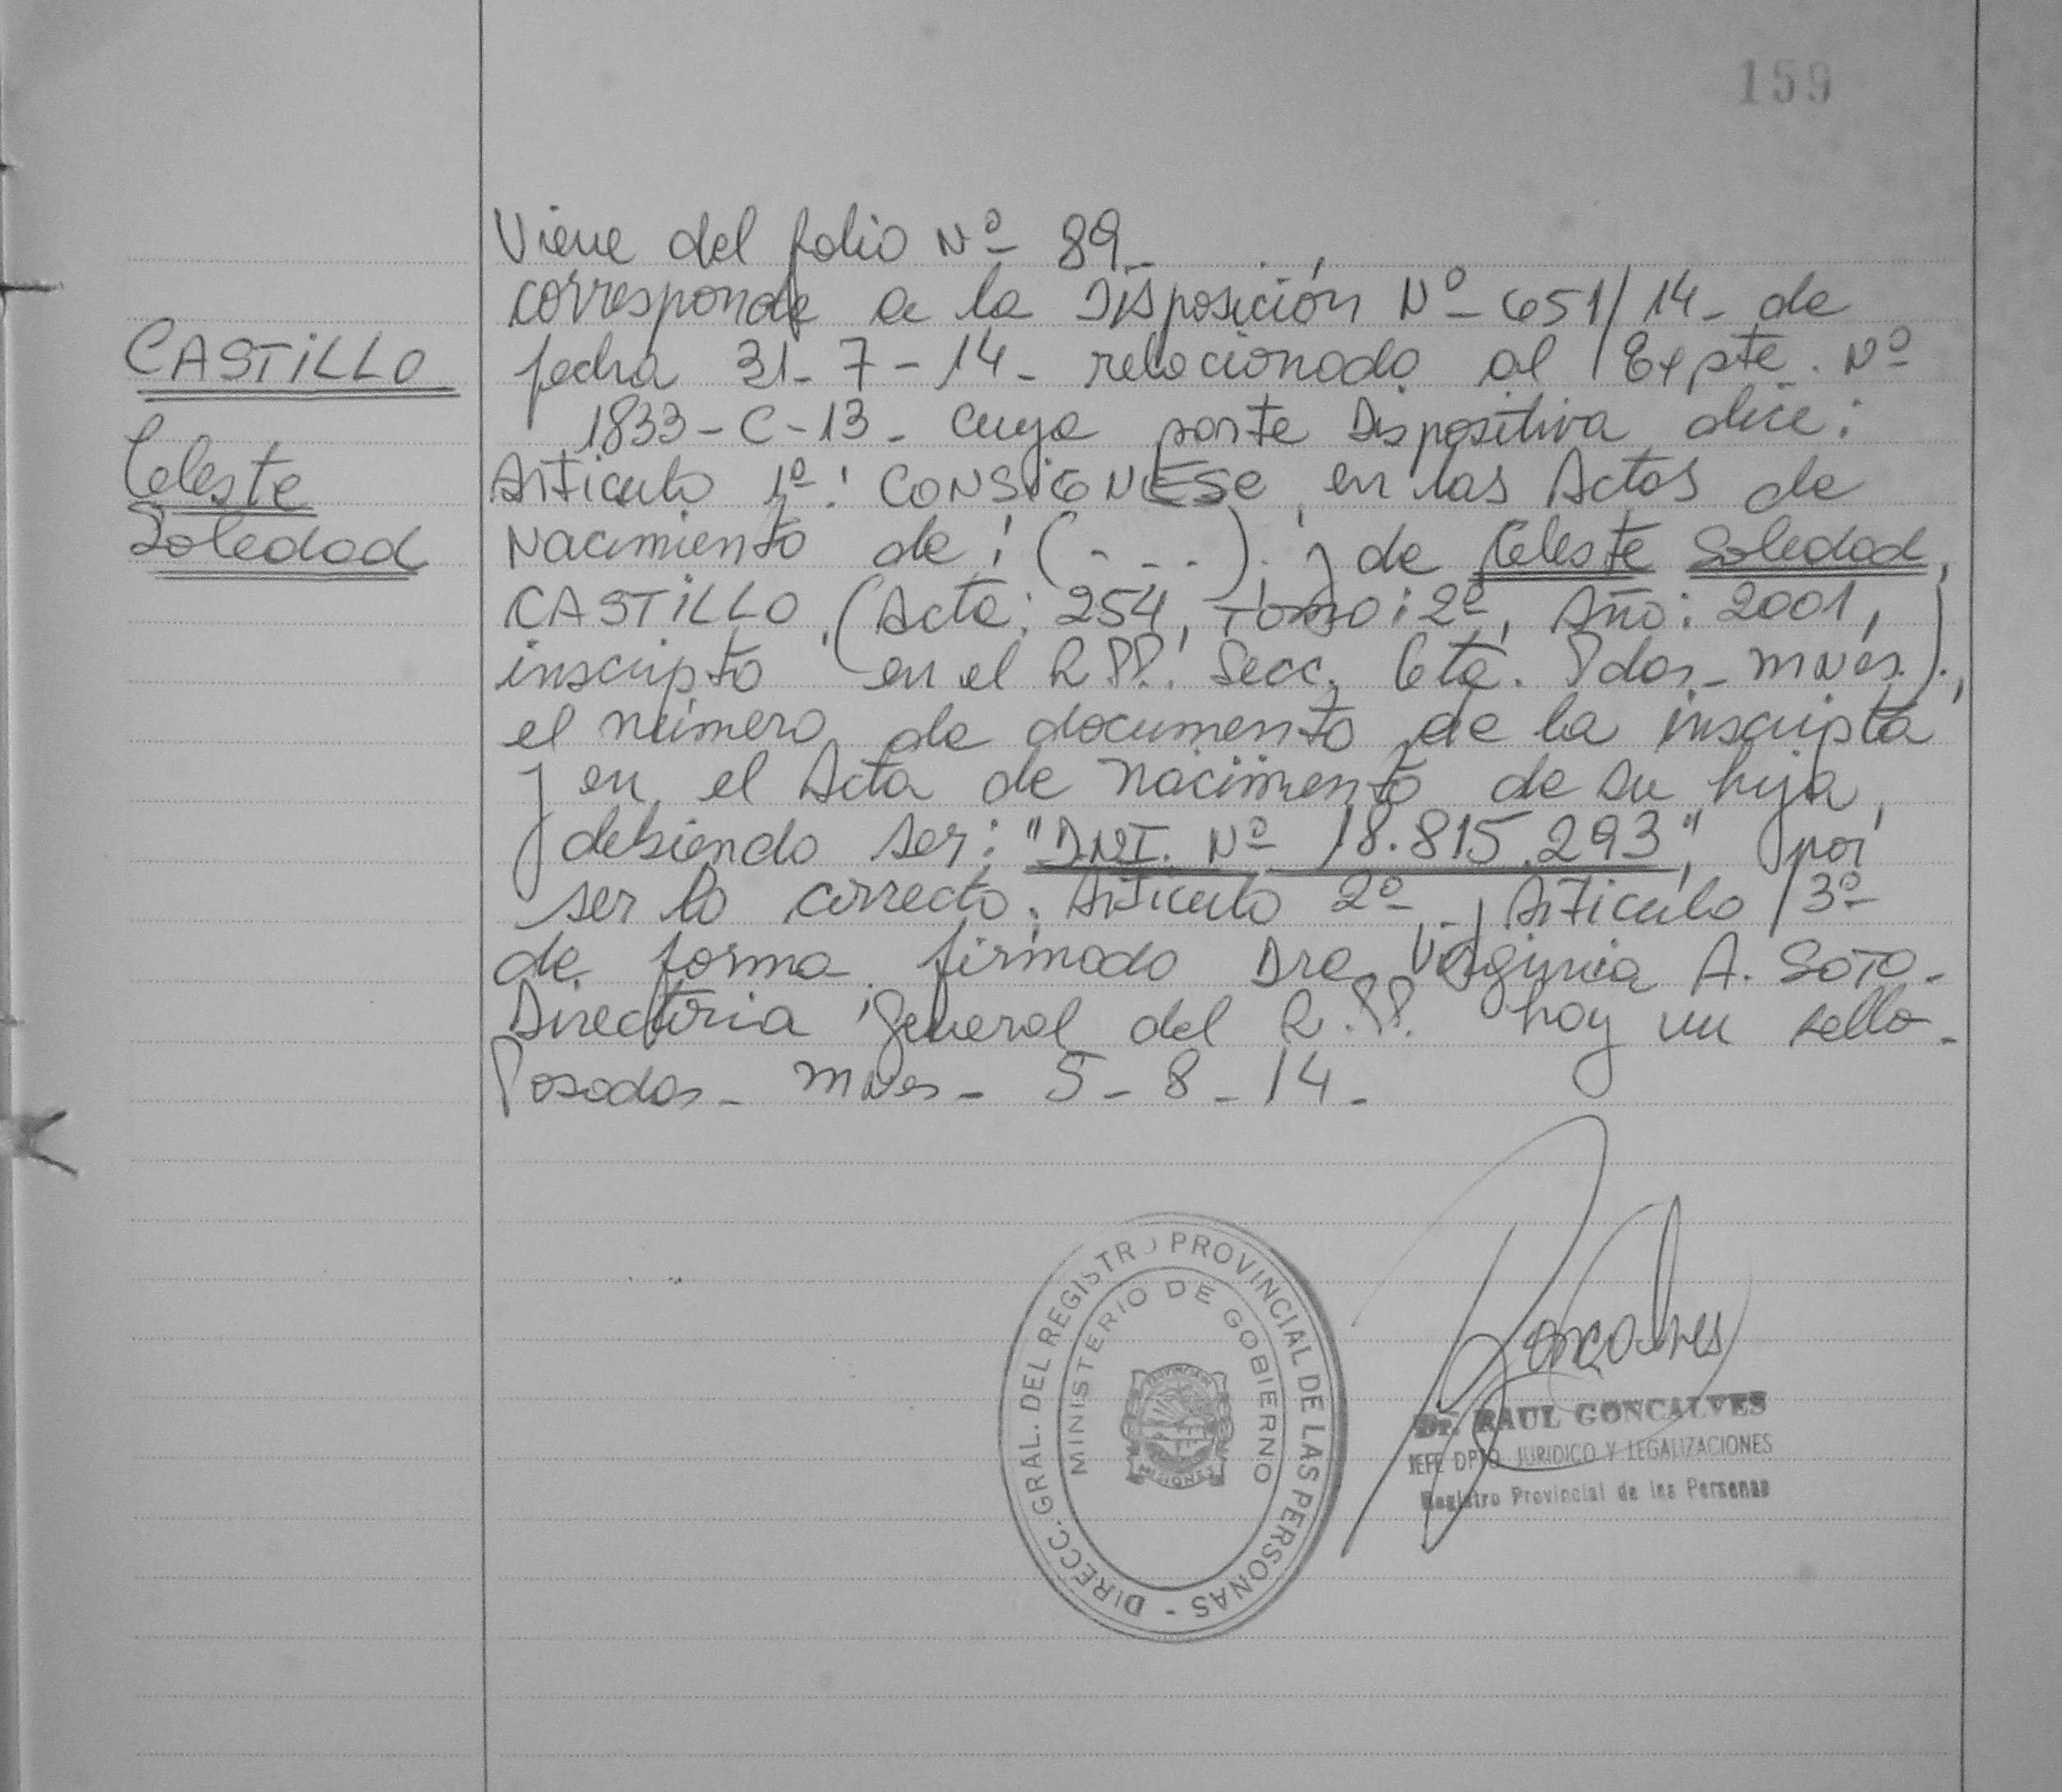 159
Viene del folio Nº 89_
corresponde a la Disposición Nº 651/14_ de
fecha 31_7_14_ relacionado al Expte. Nº
1833-C-13_ cuya parte Dispositiva dice:
Articulo 1º: CONSIGNESE en las Actas de
Nacimiento de: (- - -). y de Celeste Soledad,
CASTILLO (Acta: 254, Tomo: 2º, Año: 2001,
inscripta en el R.PP. Secc. 6ta. Pdas_ Mnes.).,
el número de documento de la inscripta
y en el Acta de nacimiento de su hija,
debiendo ser: "DNI. Nº 18.815.293", por
ser lo correcto. Articulo 2º _, Articulo 3º
de forma firmado Dra Virginia A. SOTO_
Directora General del R.PP. hay un sello_
Posadas_ Mnes_ 5_8_14_
CASTILLO
Celeste
Soledad
DIRECC. GRAL. DEL REGISTRO PROVINCIAL DE LAS PERSONAS -
MINISTERIO DE GOBIERNO
PROVINCIA DE
MISIONES
Goncalves
Dr. RAUL GONCALVES
JEFE DPTO JURIDICO Y LEGALIZACIONES
Registro Provincial de las Personas